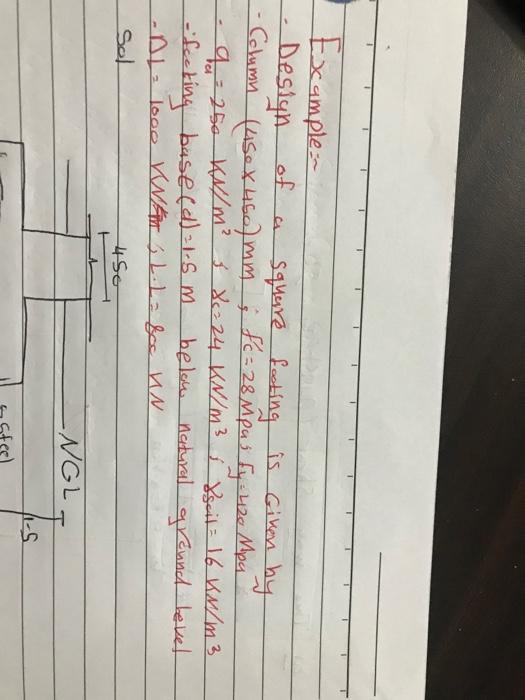 Example:-
- Design of a square footing is Given by
- Column (450x450)mm ; f'c=28Mpa ; Fy=420 Mpa
- qa = 250 KN/m² ; γc=24 KN/m³ ; γsoil = 16 KN/m³
- footing base(d)=1.5 m below natural ground Level
- DL = 1000 KN ; L.L = 800 KN
Sol
450
NGL
1.5
steel